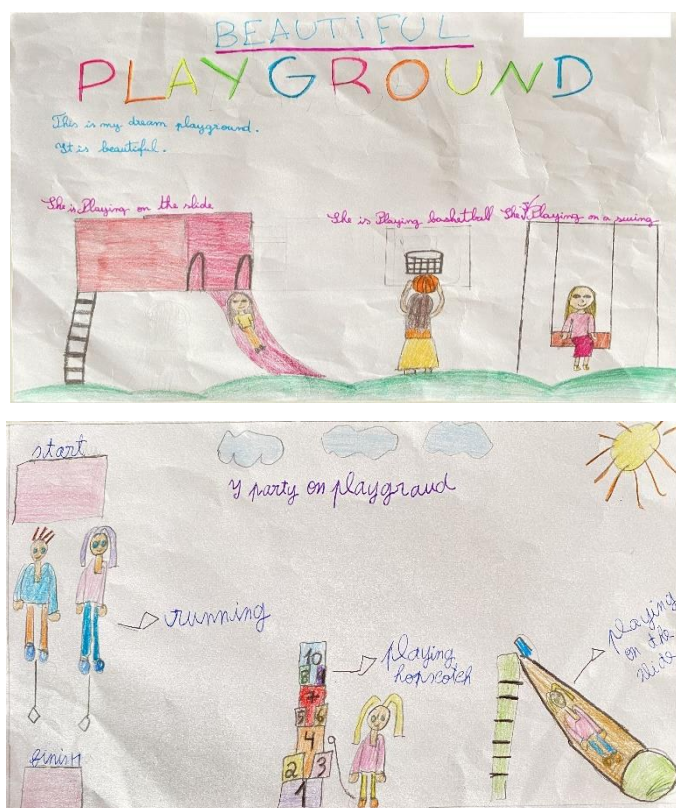 BEAUTIFUL
PLAYGROUND
This is my dream playground.
It is beautiful.
She is Playing on the slide
She is Playing basketball
She is Playing on a swing
start
Y party on playgraud
running
playing
hopscotch
playing
on the
slide
10
8 9
7
5 6
4
2 3
1
finish